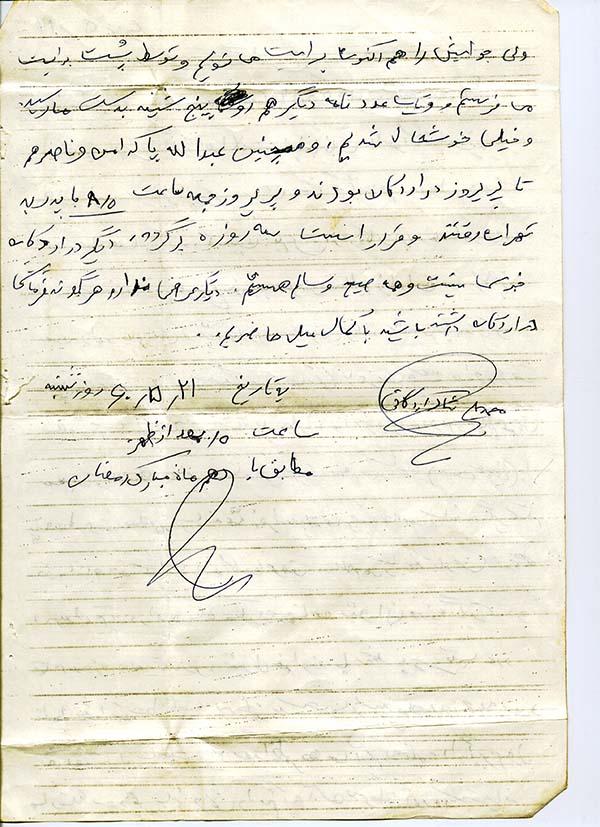 ولی جوابش را هم اکنون برایت می‌نویسم و توسط پست برایت
می فرستم و یک عدد نامه دیگر هم روز پنج شنبه بدست ما رسید
و خیلی خوشحال شدیم، و همچنین عبدالله پاک امن و ناصر هم
تا پریروز در اردکان بودند و پریروز جمعه ساعت ۸/۵ با پدر به
تهران رفتند و قرار است سه روزه برگردند، دیگر در اردکان
خبری نیست و همه صحیح و سالم هستیم. دیگر عرضی ندارم هرگونه فرمایشی
در اردکان داشته باشید با کمال میل حاضریم.
محمد اردکانی
بتاریخ ۲۱ ر ۴ ر ۶۰ روز شنبه
ساعت ۵ بعد از ظهر
مطابق با دهم ماه مبارک رمضان